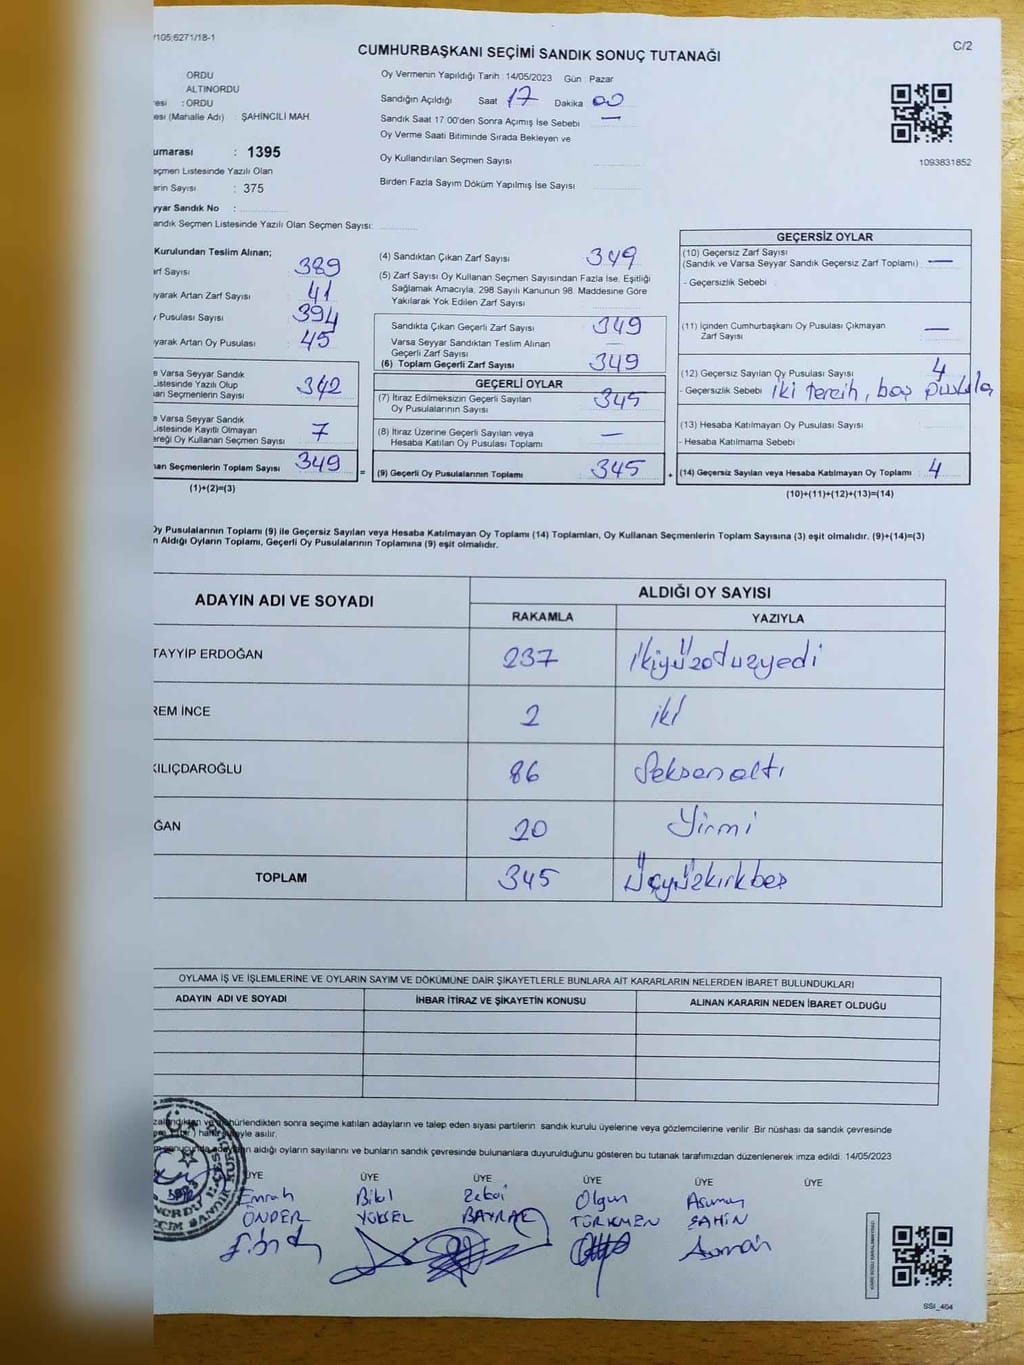 /105/6271/18-1
C/2
CUMHURBAŞKANI SEÇİMİ SANDIK SONUÇ TUTANAĞI
ORDU
ALTINORDU
esi : ORDU
esi (Mahalle Adı) : ŞAHİNCİLİ MAH.
umarası : 1395
eçmen Listesinde Yazılı Olan
erin Sayısı : 375
yyar Sandık No :
andık Seçmen Listesinde Yazılı Olan Seçmen Sayısı:
Oy Vermenin Yapıldığı Tarih : 14/05/2023 Gün : Pazar
Sandığın Açıldığı Saat 17 Dakika 00
Sandık Saat 17:00'den Sonra Açımış İse Sebebi —
Oy Verme Saati Bitiminde Sırada Bekleyen ve
Oy Kullandırılan Seçmen Sayısı
Birden Fazla Sayım Döküm Yapılmış İse Sayısı
1093831852
Kurulundan Teslim Alınan;
arf Sayısı 389
yarak Artan Zarf Sayısı 41
y Pusulası Sayısı 394
yarak Artan Oy Pusulası 45
e Varsa Seyyar Sandık
Listesinde Yazılı Olup
nan Seçmenlerin Sayısı 342
e Varsa Seyyar Sandık
Listesinde Kayıtlı Olmayan
ereği Oy Kullanan Seçmen Sayısı 7
nan Seçmenlerin Toplam Sayısı 349 =
(1)+(2)=(3)
(4) Sandıktan Çıkan Zarf Sayısı 349
(5) Zarf Sayısı Oy Kullanan Seçmen Sayısından Fazla İse, Eşitliği
Sağlamak Amacıyla, 298 Sayılı Kanunun 98. Maddesine Göre
Yakılarak Yok Edilen Zarf Sayısı
Sandıkta Çıkan Geçerli Zarf Sayısı 349
Varsa Seyyar Sandıktan Teslim Alınan
Geçerli Zarf Sayısı —
(6) Toplam Geçerli Zarf Sayısı 349
GEÇERLİ OYLAR
(7) İtiraz Edilmeksizin Geçerli Sayılan
Oy Pusulalarının Sayısı 345
(8) İtiraz Üzerine Geçerli Sayılan veya
Hesaba Katılan Oy Pusulası Toplamı —
(9) Geçerli Oy Pusulalarının Toplamı 345 +
GEÇERSİZ OYLAR
(10) Geçersiz Zarf Sayısı
(Sandık ve Varsa Seyyar Sandık Geçersiz Zarf Toplamı) —
- Geçersizlik Sebebi :
(11) İçinden Cumhurbaşkanı Oy Pusulası Çıkmayan
Zarf Sayısı —
(12) Geçersiz Sayılan Oy Pusulası Sayısı 4
- Geçersizlik Sebebi : iki tercih, boş pusula
(13) Hesaba Katılmayan Oy Pusulası Sayısı
- Hesaba Katılmama Sebebi
(14) Geçersiz Sayılan veya Hesaba Katılmayan Oy Toplamı : 4
(10)+(11)+(12)+(13)=(14)
Oy Pusulalarının Toplamı (9) ile Geçersiz Sayılan veya Hesaba Katılmayan Oy Toplamı (14) Toplamları, Oy Kullanan Seçmenlerin Toplam Sayısına (3) eşit olmalıdır. (9)+(14)=(3)
n Aldığı Oyların Toplamı, Geçerli Oy Pusulalarının Toplamına (9) eşit olmalıdır.
ADAYIN ADI VE SOYADI ALDIĞI OY SAYISI
RAKAMLA YAZIYLA
TAYYIP ERDOĞAN 237 İkiyüzotuzyedi
REM İNCE 2 iki
KILIÇDAROĞLU 86 Seksenaltı
ĞAN 20 Yirmi
TOPLAM 345 Üçyüzkırkbeş
OYLAMA İŞ VE İŞLEMLERİNE VE OYLARIN SAYIM VE DÖKÜMÜNE DAİR ŞİKAYETLERLE BUNLARA AİT KARARLARIN NELERDEN İBARET BULUNDUKLARI
ADAYIN ADI VE SOYADI İHBAR İTİRAZ VE ŞİKAYETİN KONUSU ALINAN KARARIN NEDEN İBARET OLDUĞU
zalandıktan ve mühürlendikten sonra seçime katılan adayların ve talep eden siyasi partilerin sandık kurulu üyelerine veya gözlemcilerine verilir. Bir nüshası da sandık çevresinde
asılır.
aldığı oyların sayılarını ve bunların sandık çevresinde bulunanlara duyurulduğunu gösteren bu tutanak tarafımızdan düzenlenerek imza edildi. 14/05/2023
ÜYE ÜYE ÜYE ÜYE ÜYE ÜYE
Emrah Bilal Zekai Olgun Asuman
ÖNDER YÜKSEL BAYRAK TÜRKMEN ŞAHİN
SSI_464